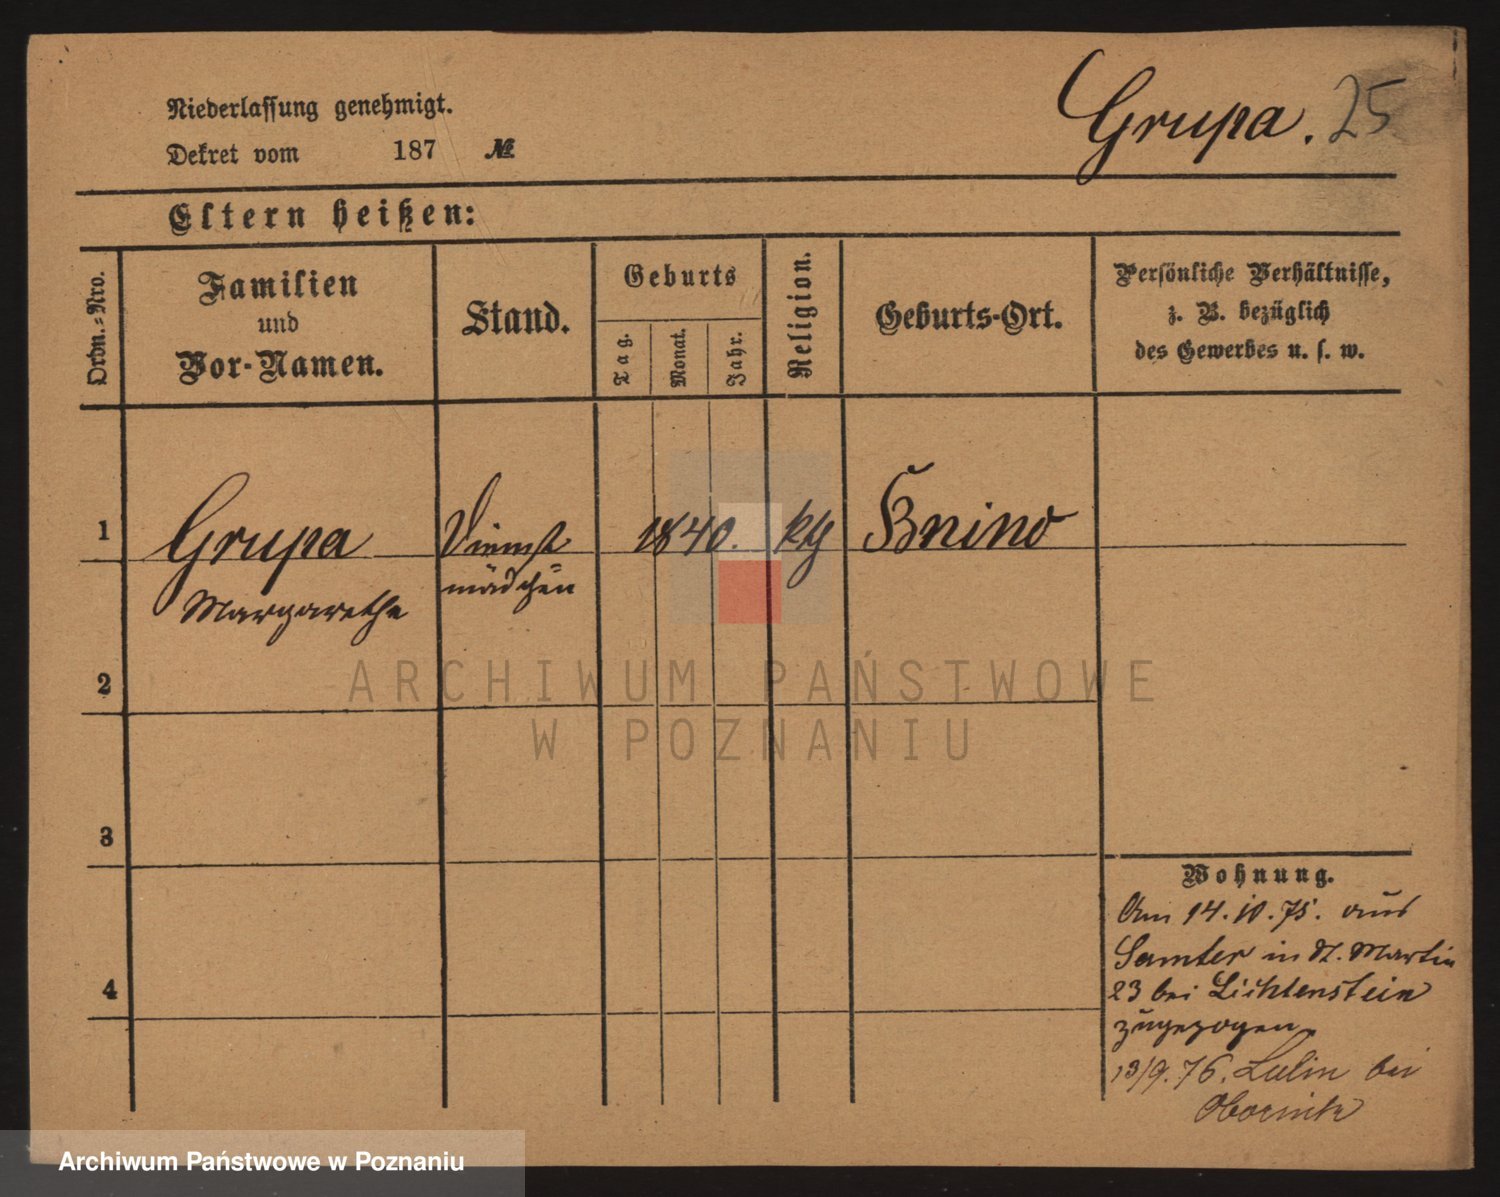 Niederlassung genehmigt.
Grupa. 25
Dekret vom 187 №
Eltern heißen:
Ordn.-Nro.
Familien
und
Vor-Namen.
Stand.
Geburts
Tag.
Monat.
Jahr.
Religion.
Geburts-Ort.
Persönliche Verhältnisse,
z. B. bezüglich
des Gewerbes u. s. w.
1 Grupa Dienst 1840. kth Bnino
Margarethe mädchen
2
3
4
Wohnung.
Am 14.10.75. aus
Samter in St. Martin
23 bei Lichtenstein
zugezogen
13/9.76. Lulin bei
Obornik
ARCHIWUM PAŃSTWOWE
W POZNANIU
Archiwum Państwowe w Poznaniu